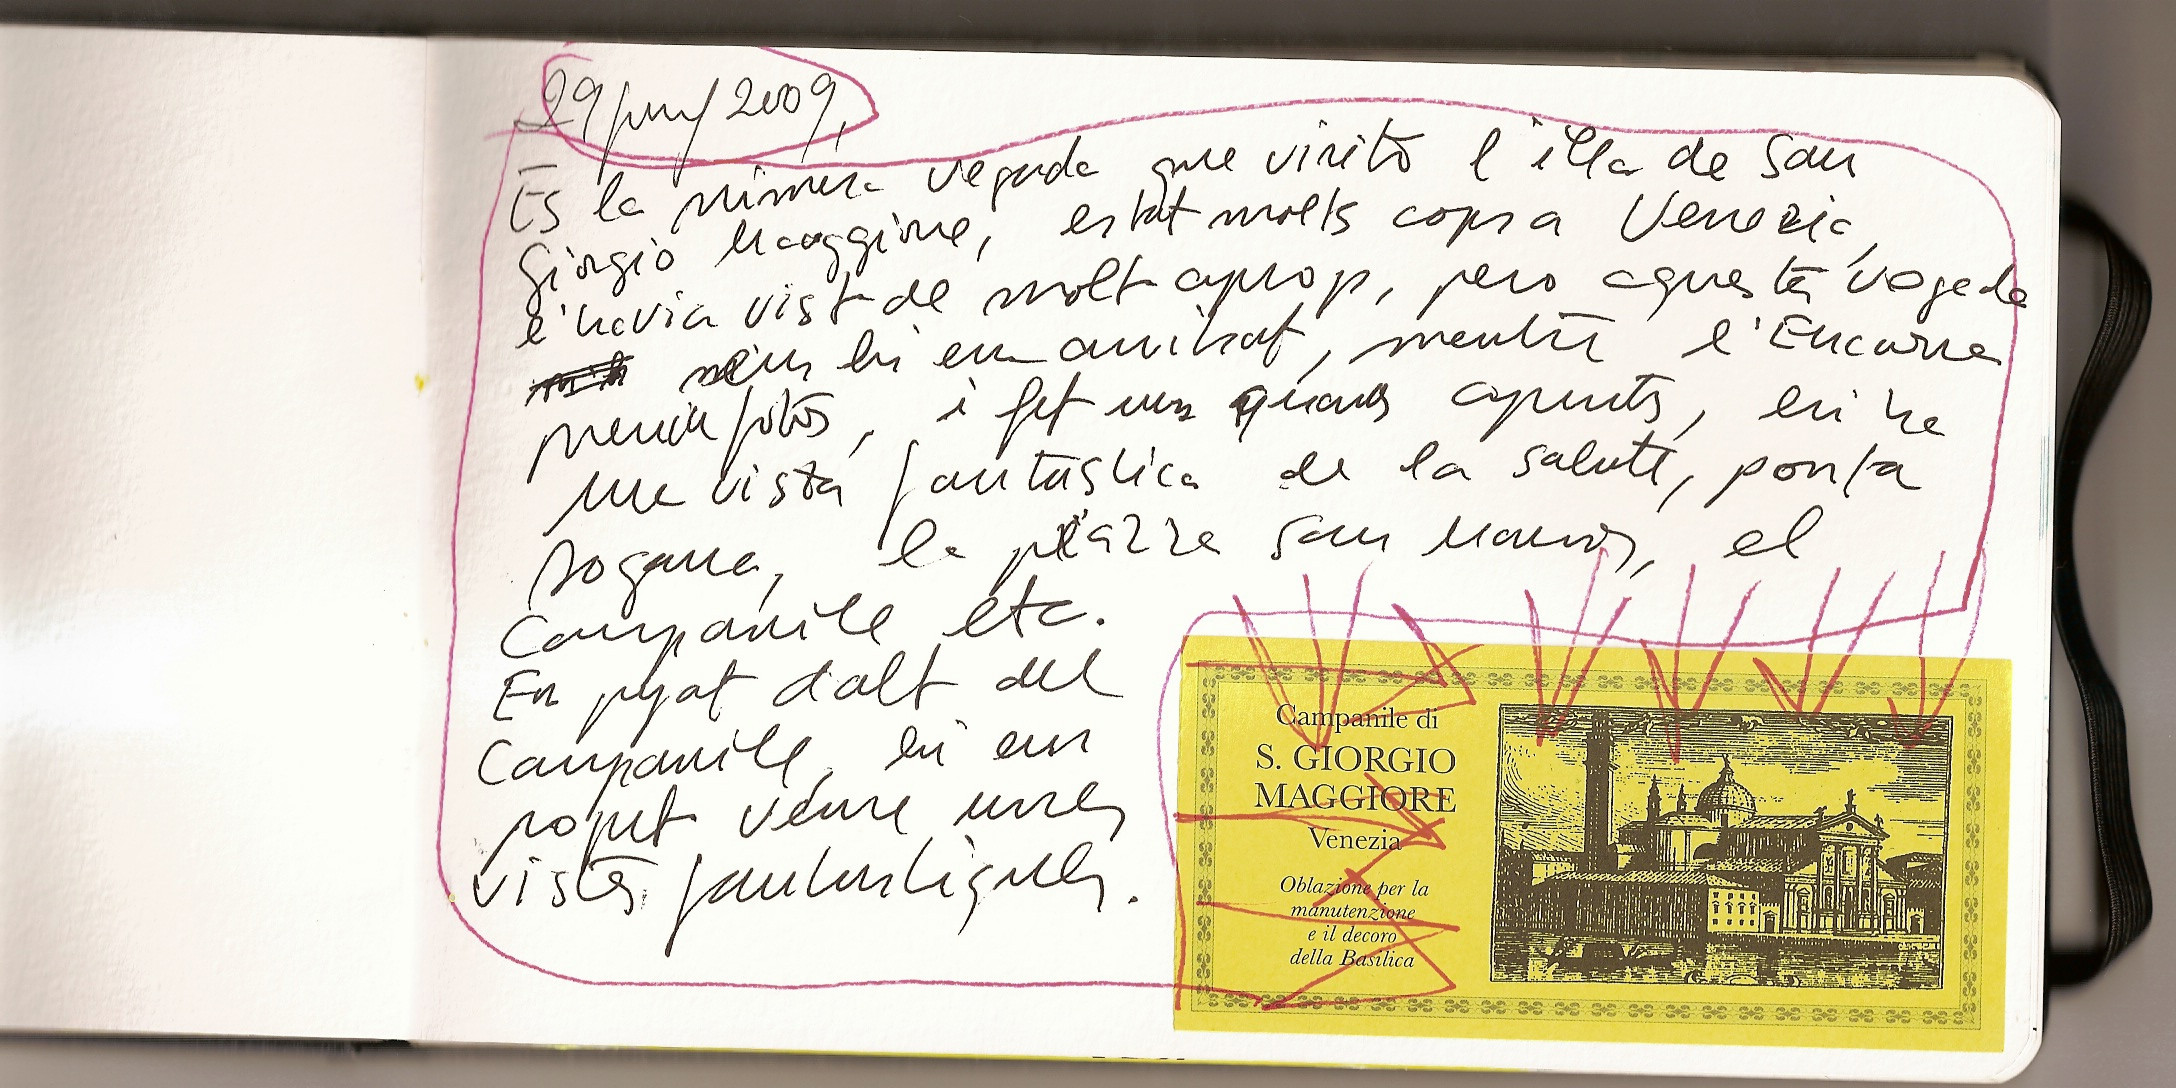 29/juny/2009,
Es la primera vegada que visito l'illa de San
Giorgio Maggiore, estat molts cops a Venezia,
l'havia vist de molt aprop, pero aquesta vegada
hi em arribat, mentre l'Encarna
prenia fotos, i fet uns quans apunts, hi ha
una vista fantastica de la salute, ponta
Dogana, la piazza San Marco, el
Campanile etc.
En pujat dalt del
Campanile, hi em
pogut veure unes
vistes fantastiques.
Campanile di
S. GIORGIO
MAGGIORE
Venezia
Oblazione per la
manutenzione
e il decoro
della Basilica